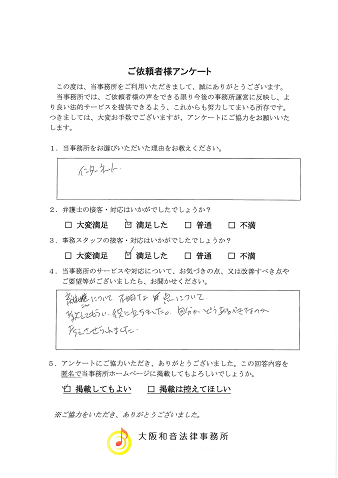 ご依頼者様アンケート
この度は、当事務所をご利用いただきまして、誠にありがとうございます。
当事務所では、ご依頼者様の声をできる限り今後の事務所運営に反映し、よ
り良い法的サービスを提供できるよう、これからも努力してまいる所存です。
つきましては、大変お手数でございますが、アンケートにご協力をお願いいた
します。
1．当事務所をお選びいただいた理由をお教えください。
インターネット.
2．弁護士の接客・対応はいかがでしたでしょうか？
□ 大変満足 ☑ 満足した □ 普通 □ 不満
3．事務スタッフの接客・対応はいかがでしたでしょうか？
□ 大変満足 ☑ 満足した □ 普通 □ 不満
4．当事務所のサービスや対応について、お気づきの点、又は改善すべき点や
ご要望等がございましたら、お聞かせください。
について 不明な 点について
役に立ちました。
5．アンケートにご協力いただき、ありがとうございました。この回答内容を
匿名で当事務所ホームページに掲載してもよろしいでしょうか。
☑ 掲載してもよい □ 掲載は控えてほしい
※ご協力をいただき、ありがとうございました。
大阪和音法律事務所